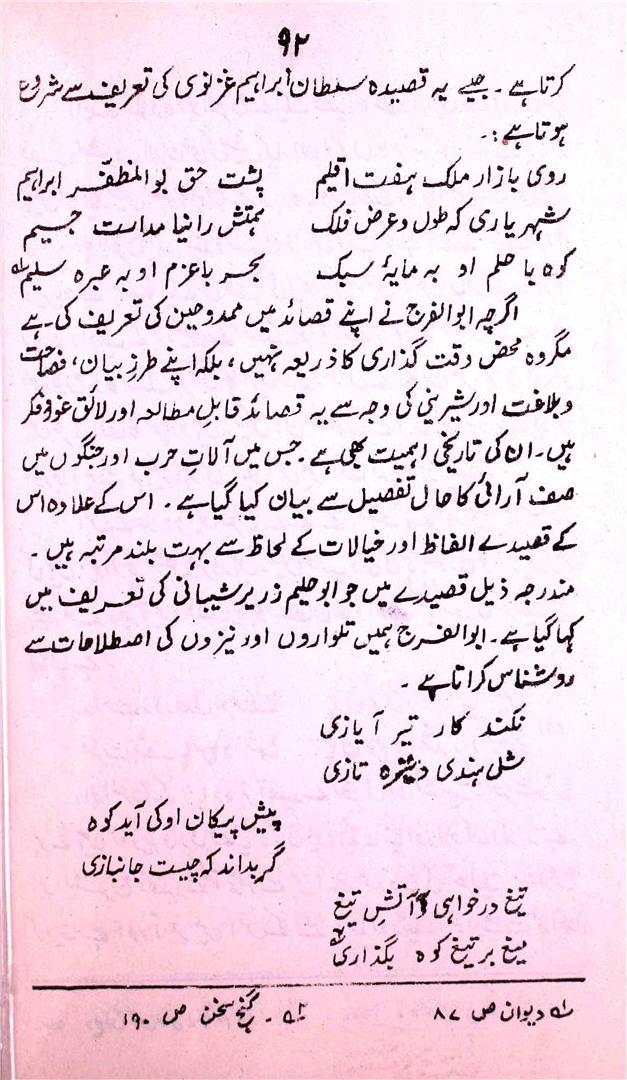 ۹۲
کرتا ہے۔ جیسے یہ قصیدہ سلطان ابراہیم غزنوی کی تعریف سے شروع
ہوتا ہے :۔
روی بازار ملک ہفت اقلیم پشت حق بوالمظفر ابراہیم
شہریاری کہ طول و عرض فلک ہمتش رانیا مداست جسیم
کوہ با حلم او بہ مایۂ سبک بحر باعزم او بہ عبرہ سلیم لہ
اگرچہ ابوالفرج نے اپنے قصائد میں ممدوحین کی تعریف کی ہے
مگر وہ محض وقت گذاری کا ذریعہ نہیں، بلکہ اپنے طرز بیان، فصاحت
وبلاغت اور شیرینی کی وجہ سے یہ قصائد قابلِ مطالعہ اور لائق غور و فکر
ہیں۔ ان کی تاریخی اہمیت بھی ہے۔ جس میں آلاتِ حرب اور جنگوں میں
صف آرائی کا حال تفصیل سے بیان کیا گیا ہے۔ اس کے علاوہ اس
کے قصیدے الفاظ اور خیالات کے لحاظ سے بہت بلند مرتبہ ہیں۔
مندرجہ ذیل قصیدے میں جو ابو حلیم زریر شیبانی کی تعریف میں
کہا گیا ہے۔ ابوالفرج ہمیں تلواروں اور نیزوں کی اصطلاحات سے
روشناس کراتا ہے۔
نکند کار تیر آیازی
شل ہندی و تازی
پیش پیکان او کی آید کوہ
گر بداند کہ چیست جانبازی
تیغ در خواہی و آتشِ تیغ
میغ بر تیغ کوہ بگذاری
لہ دیوان ص ۸۷ گنج سخن ص ۱۹۰